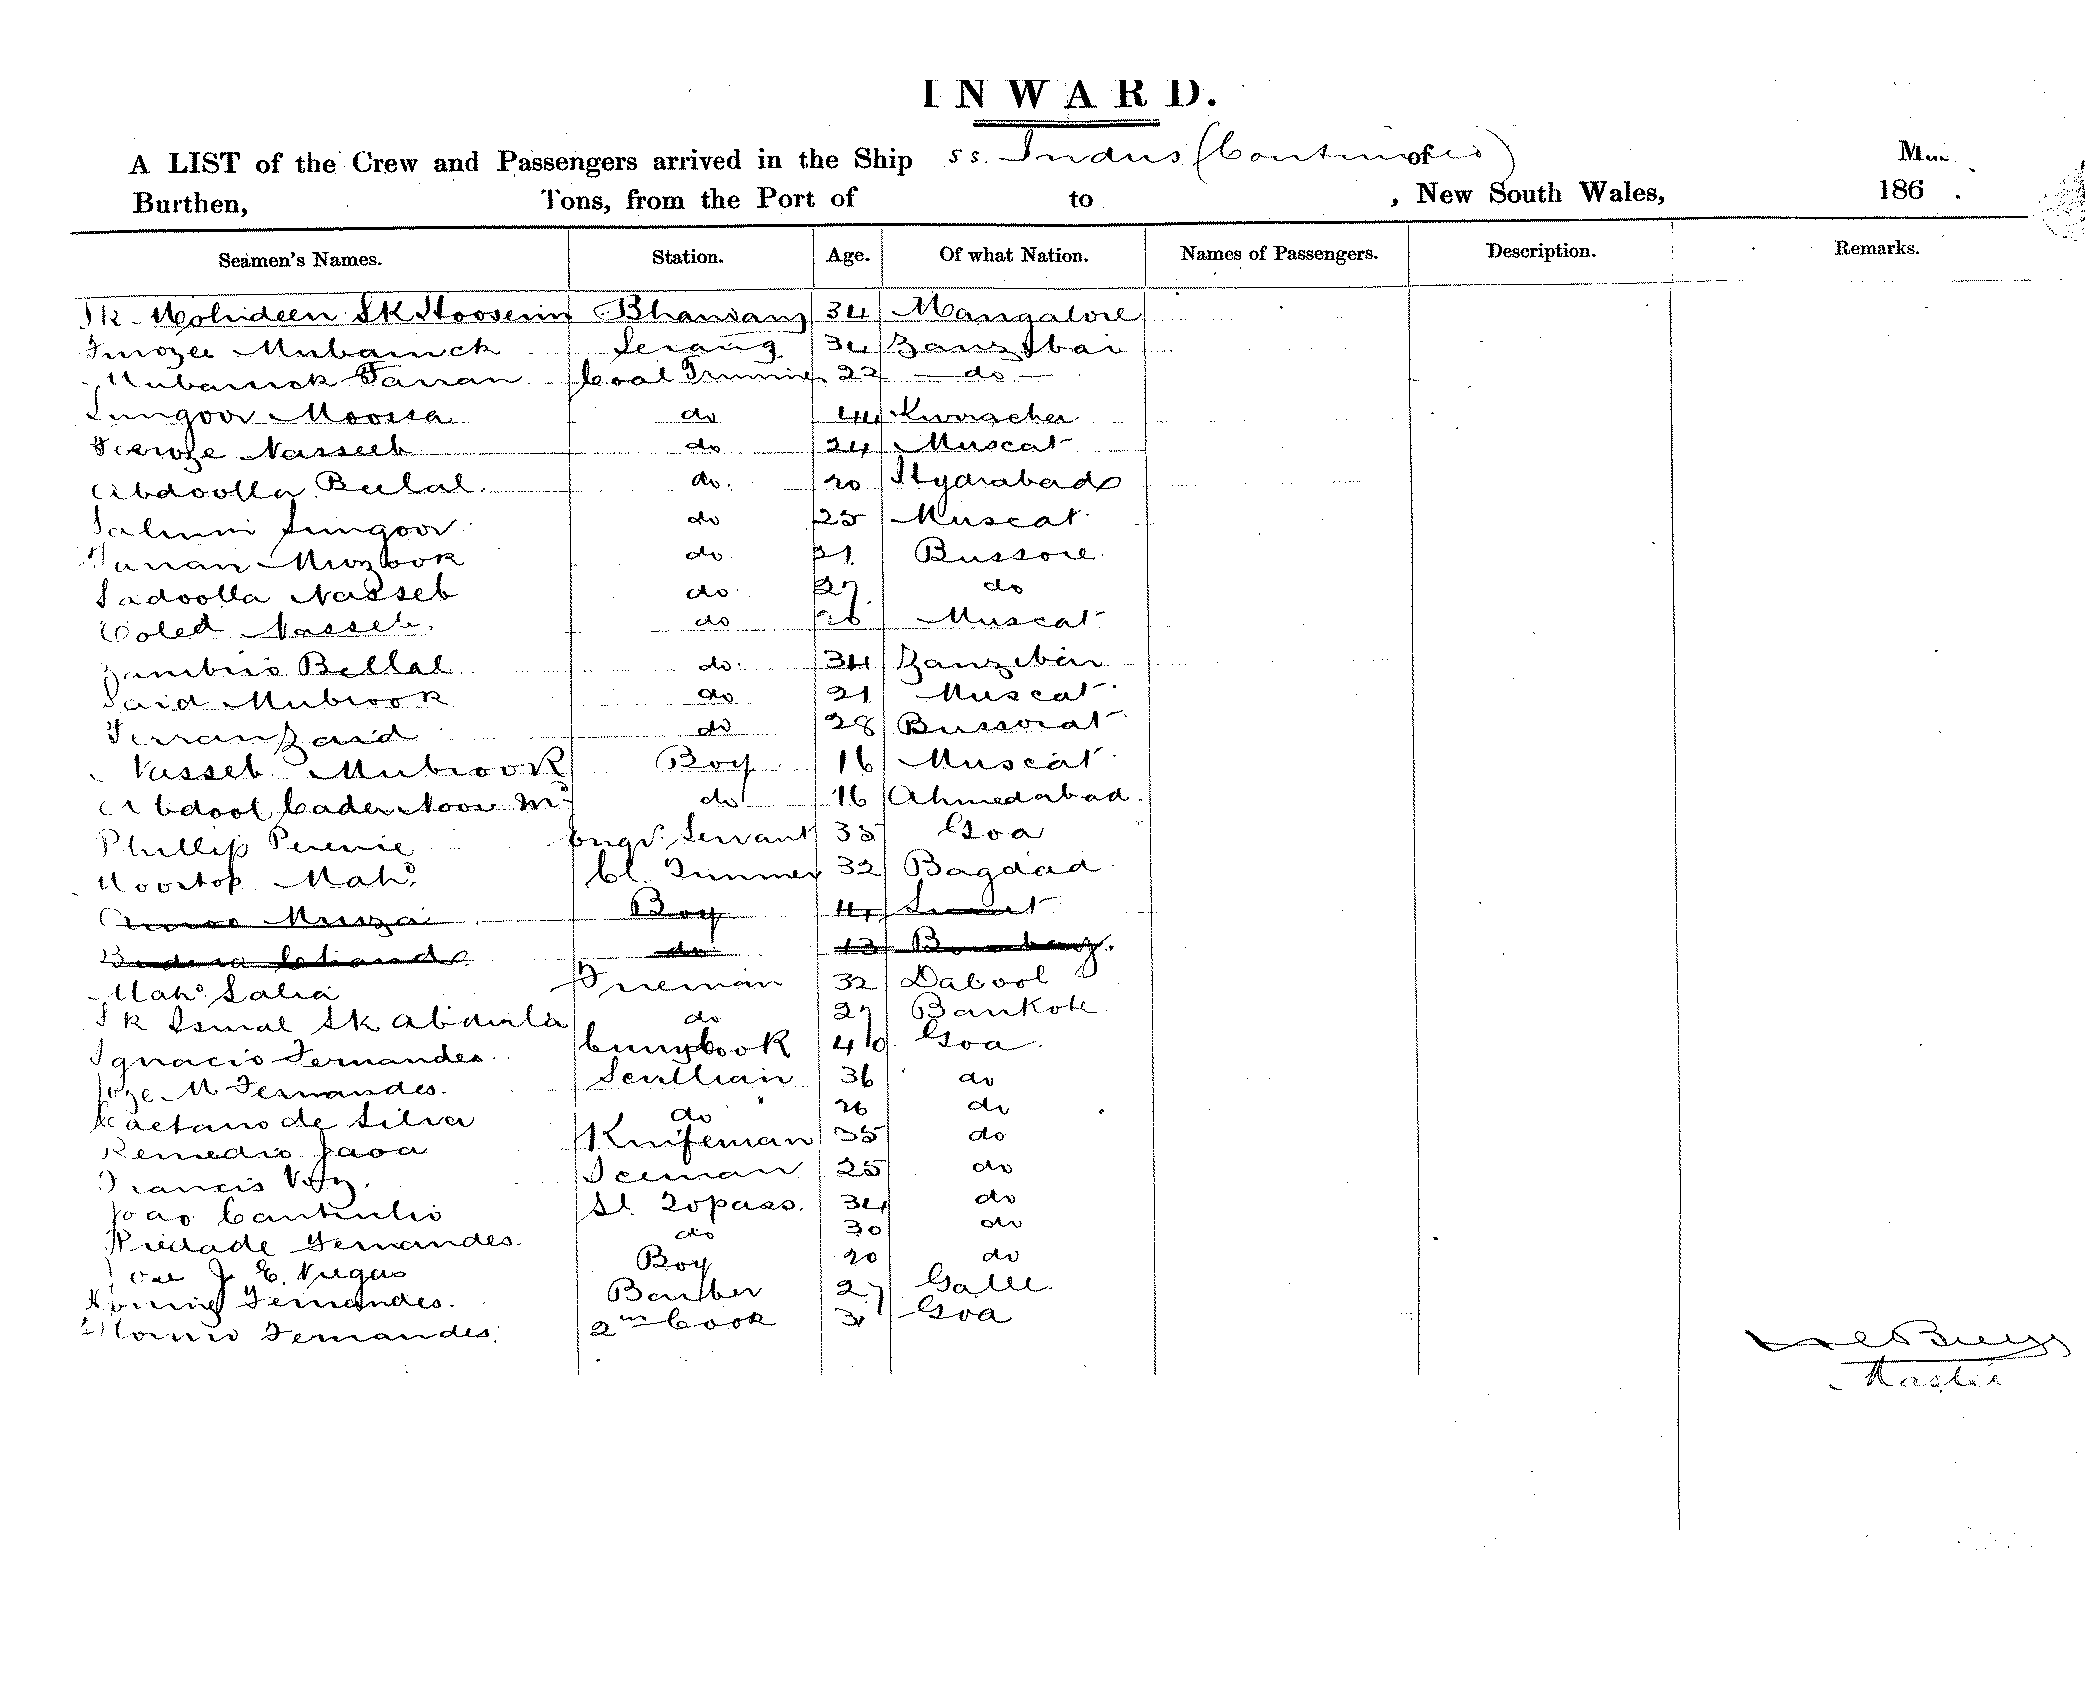 INWARD.
A LIST of the Crew and Passengers arrived in the Ship ss. Indus (Continued) of
Burthen, Tons, from the Port of to , New South Wales, 186 .
Seamen's Names. Station. Age. Of what Nation. Names of Passengers. Description. Remarks.
Sk. Mohideen Sk Hoosenin Bhandary 34 Mangalore
Mubarrck Serang 34 Zanzibar
Mubarrck Farran Coal Trimmer 22 do
Sungoor Moossa do 44 Kurrachee
Feroze Nasseeb do 24 Muscat
Abdoolla Bulal. do. 20 Hydrabad
Salmin Sungoor do 25 Muscat
Farran Murzook do 21 Bussore
Sadoolla Nasseb do 27 do
Coled Nasseb. do 26 Muscat
Zambrio Bellal do. 34 Zanzibar
Said Mubrook do 21 Muscat
Ferran Zaid do 28 Bussorat
Nasseb Mubrook Boy 16 Muscat
Abdool Cader Noor Md. do 16 Ahmedabad.
Phillip Pereric Engrs. Servant 35 Goa
Moostop Mahd. Cl. Trimmer 32 Bagdad
Muza Boy
do 13 Bombay.
Mahd. Salia Fireman 32 Dabool
Sk Ismal Sk Abdulla do 27 Bankote
Ignacio Fernandes Cook 40 Goa
Joze M Fernandes. Scullian 36 do
Caetano de Silva do 26 do
Remedio Jaoa Knifeman 35 do
Francis Vaz. Iceman 25 do
Joao Cantulio Sl. Topass. 34 do
Piedade Fernandes. do 30 do
Jose J. E. Viegas Boy 20 do
Fernandes. Barber 27 Galle
Fernandes. 2nd Cook 31 Goa
Master